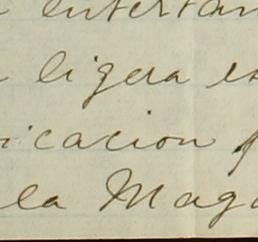 entertan
ligera es
icacion p
la Mag